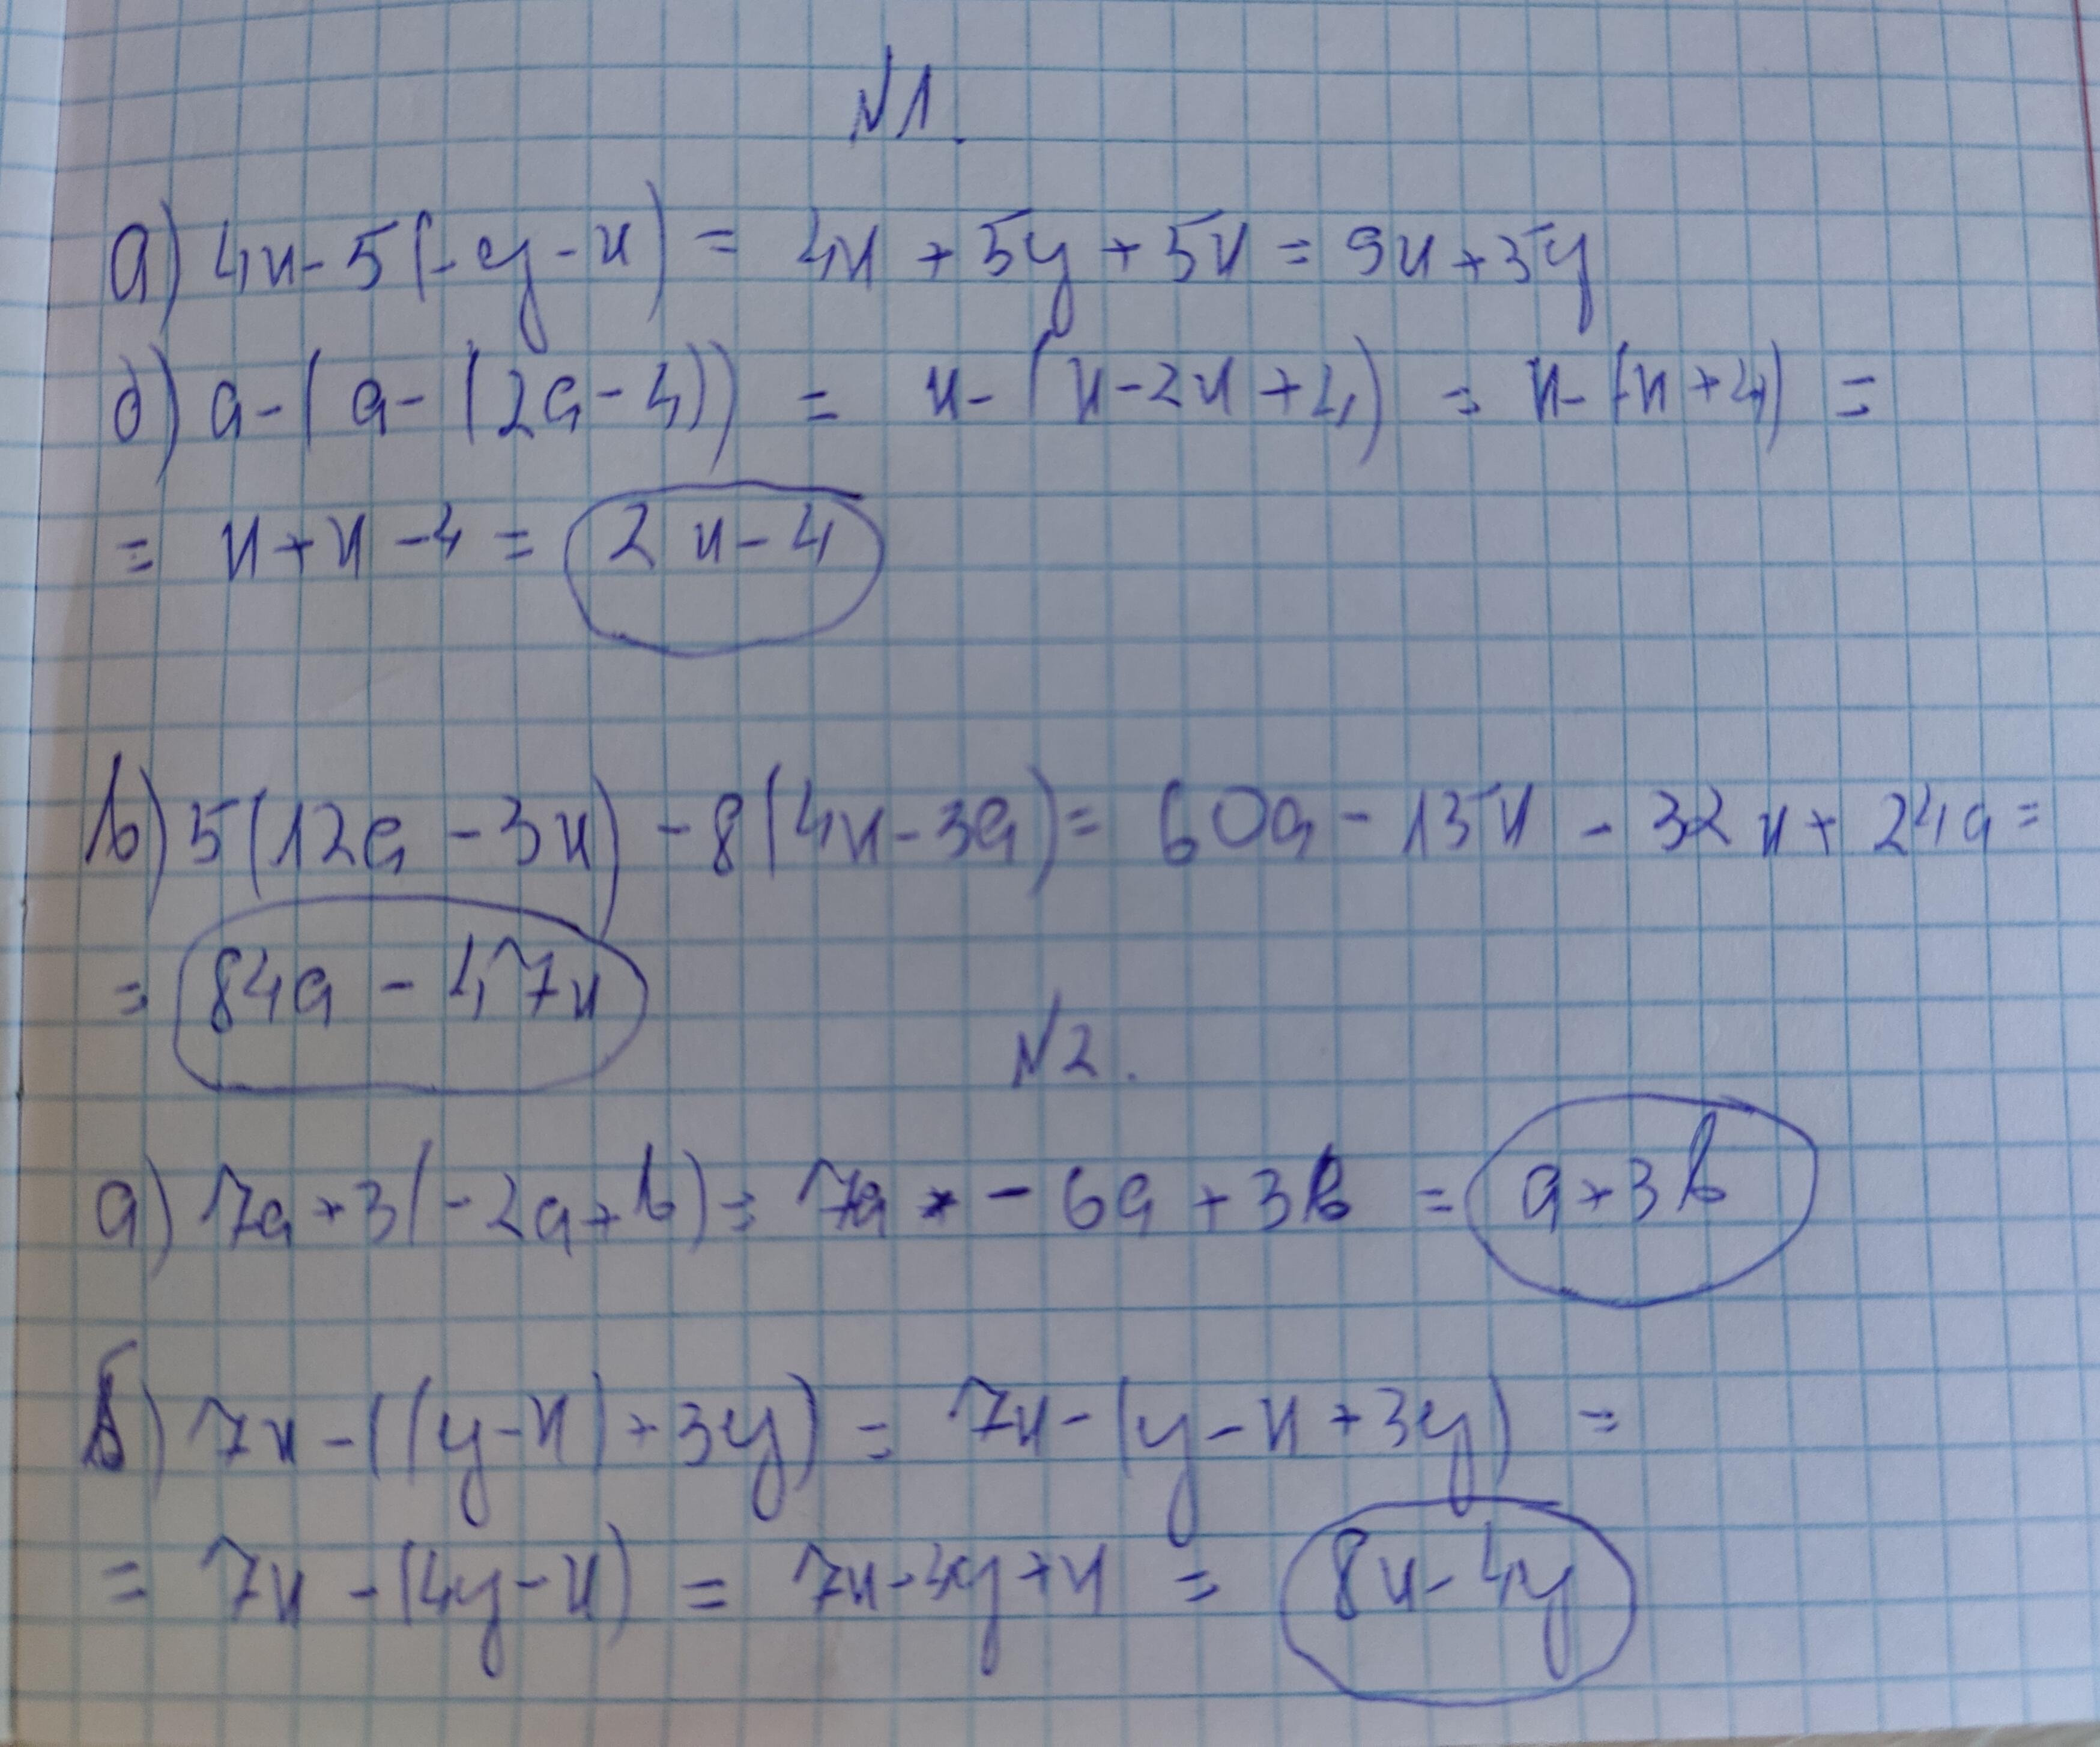 №1.
а) 4x-5(-y-x) = 4x+5y+5x = 9x+5y
б) a-(a-(2a-4)) = x-(x-2x+4) = x-(-x+4) =
= x+x-4 = 2x-4
в) 5(12a-3x)-8(4x-3a) = 60a-15x-32x+24a =
= 84a-47x
№2.
а) 7a+3(-2a+b) = 7a-6a+3b = a+3b
б) 7x-((y-x)+3y) = 7x-(y-x+3y) =
= 7x-(4y-x) = 7x-4y+x = 8x-4y